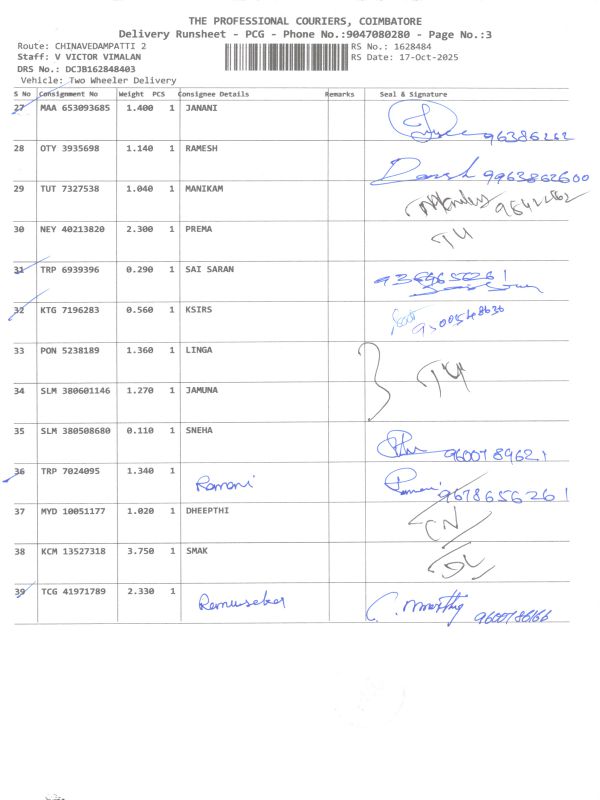 THE PROFESSIONAL COURIERS, COIMBATORE
Delivery Runsheet - PCG - Phone No.:9047080280 - Page No.:3
Route: CHINAVEDAMPATTI 2 RS No.: 1628484
Staff: V VICTOR VIMALAN RS Date: 17-Oct-2025
DRS No.: DCJB162848403
Vehicle: Two Wheeler Delivery
S No Consignment No Weight PCS Consignee Details Remarks Seal & Signature
27 MAA 653093685 1.400 1 JANANI 96386262
28 OTY 3935698 1.140 1 RAMESH 9963862600
29 TUT 7327538 1.040 1 MANIKAM
30 NEY 40213820 2.300 1 PREMA
31 TRP 6939396 0.290 1 SAI SARAN
32 KTG 7196283 0.560 1 KSIRS
33 PON 5238189 1.360 1 LINGA
34 SLM 380601146 1.270 1 JAMUNA
35 SLM 380508680 0.110 1 SNEHA 9600789621
36 TRP 7024095 1.340 1 Ramani Ramani 9678656261
37 MYD 10051177 1.020 1 DHEEPTHI CN
38 KCM 13527318 3.750 1 SMAK DL
39 TCG 41971789 2.330 1